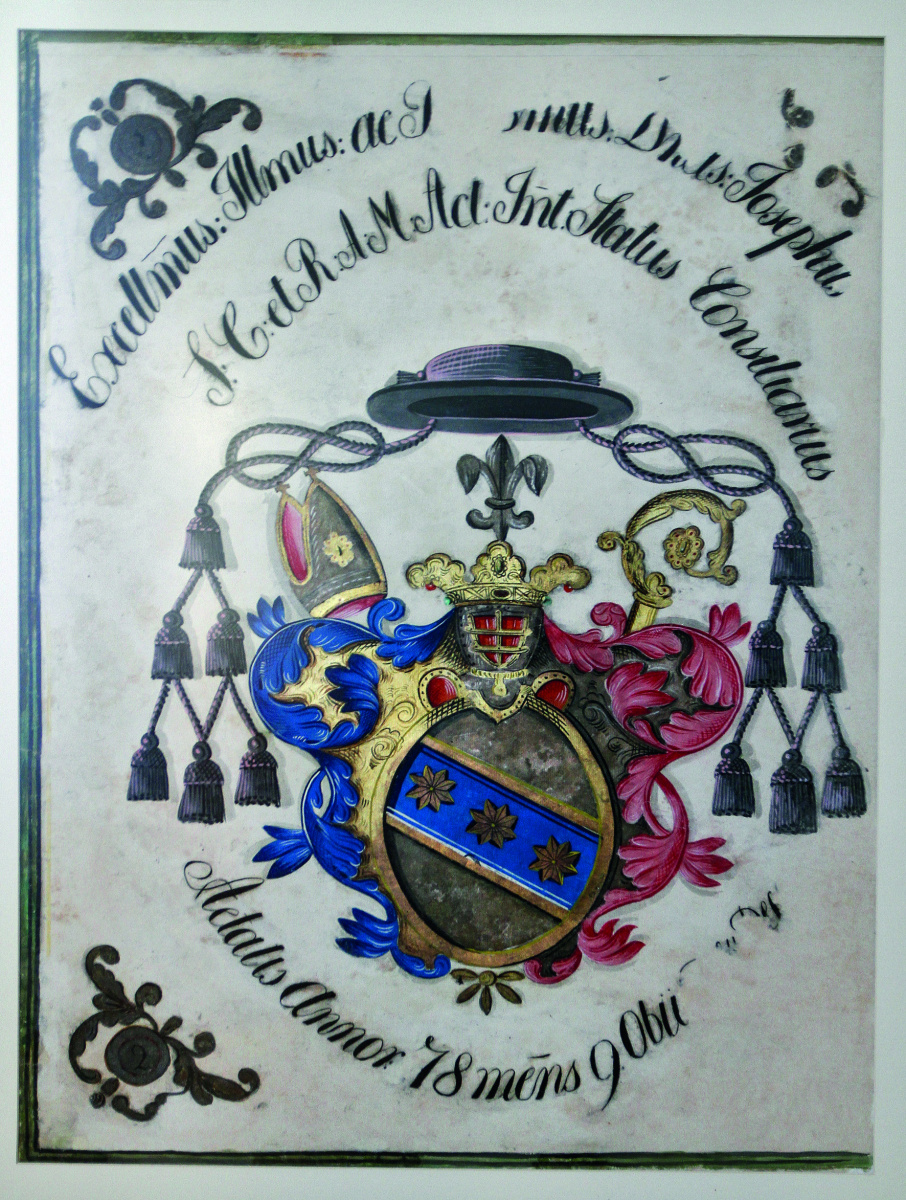 Excell̄mus: Illmus: ac Dn̄us: Josephus
S. C: et R. A. M. Act: Int̄. Status Consiliarius
Aetatis Annor. 78 mēns 9. Obii